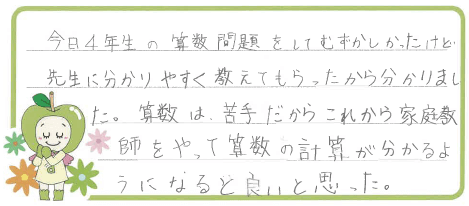 今日4年生の算数問題をしてむずかしかったけど
先生に分かりやすく教えてもらったから分かりまし
た。算数は、苦手だからこれから家庭教
師をやって算数の計算が分かるよ
うになると良いと思った。